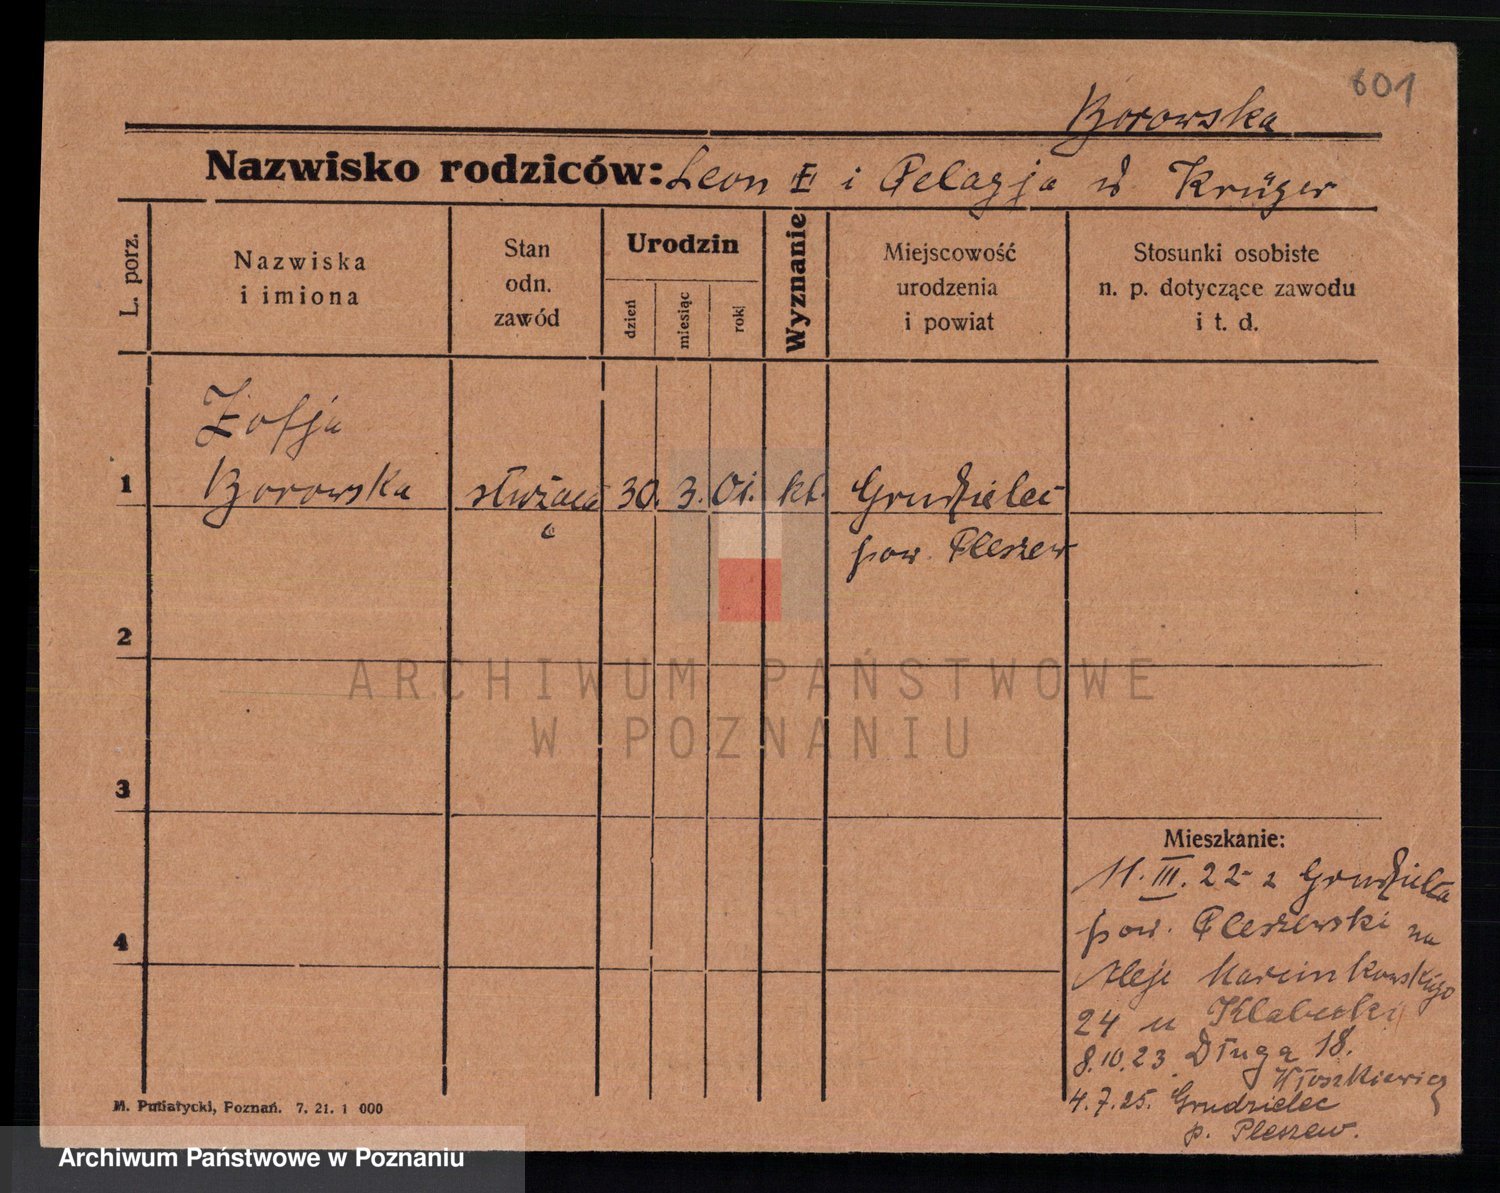 601
Borowska
Nazwisko rodziców: Leon i Pelagja Krüger
L. porz.
Nazwiska
i imiona
Stan
odn.
zawód
Urodzin
dzień
miesiąc
rok
Wyznanie
Miejscowość
urodzenia
i powiat
Stosunki osobiste
n. p. dotyczące zawodu
i t. d.
Zofja
1 Borowska służąca 30. 3. 01. kt. Grudzielec
pow. Pleszew
2
ARCHIWUM PAŃSTWOWE
W POZNANIU
3
Mieszkanie:
11. III. 22 z Grudzielca
pow. Pleszewski na
4
Aleje Marcinkowskiego
24 u
8.10.23. Długa 18.
Włoszkiewicz
4.7.25. Grudzielec
p. Pleszew.
M. Putiatycki, Poznań. 7. 21. 1 000
Archiwum Państwowe w Poznaniu